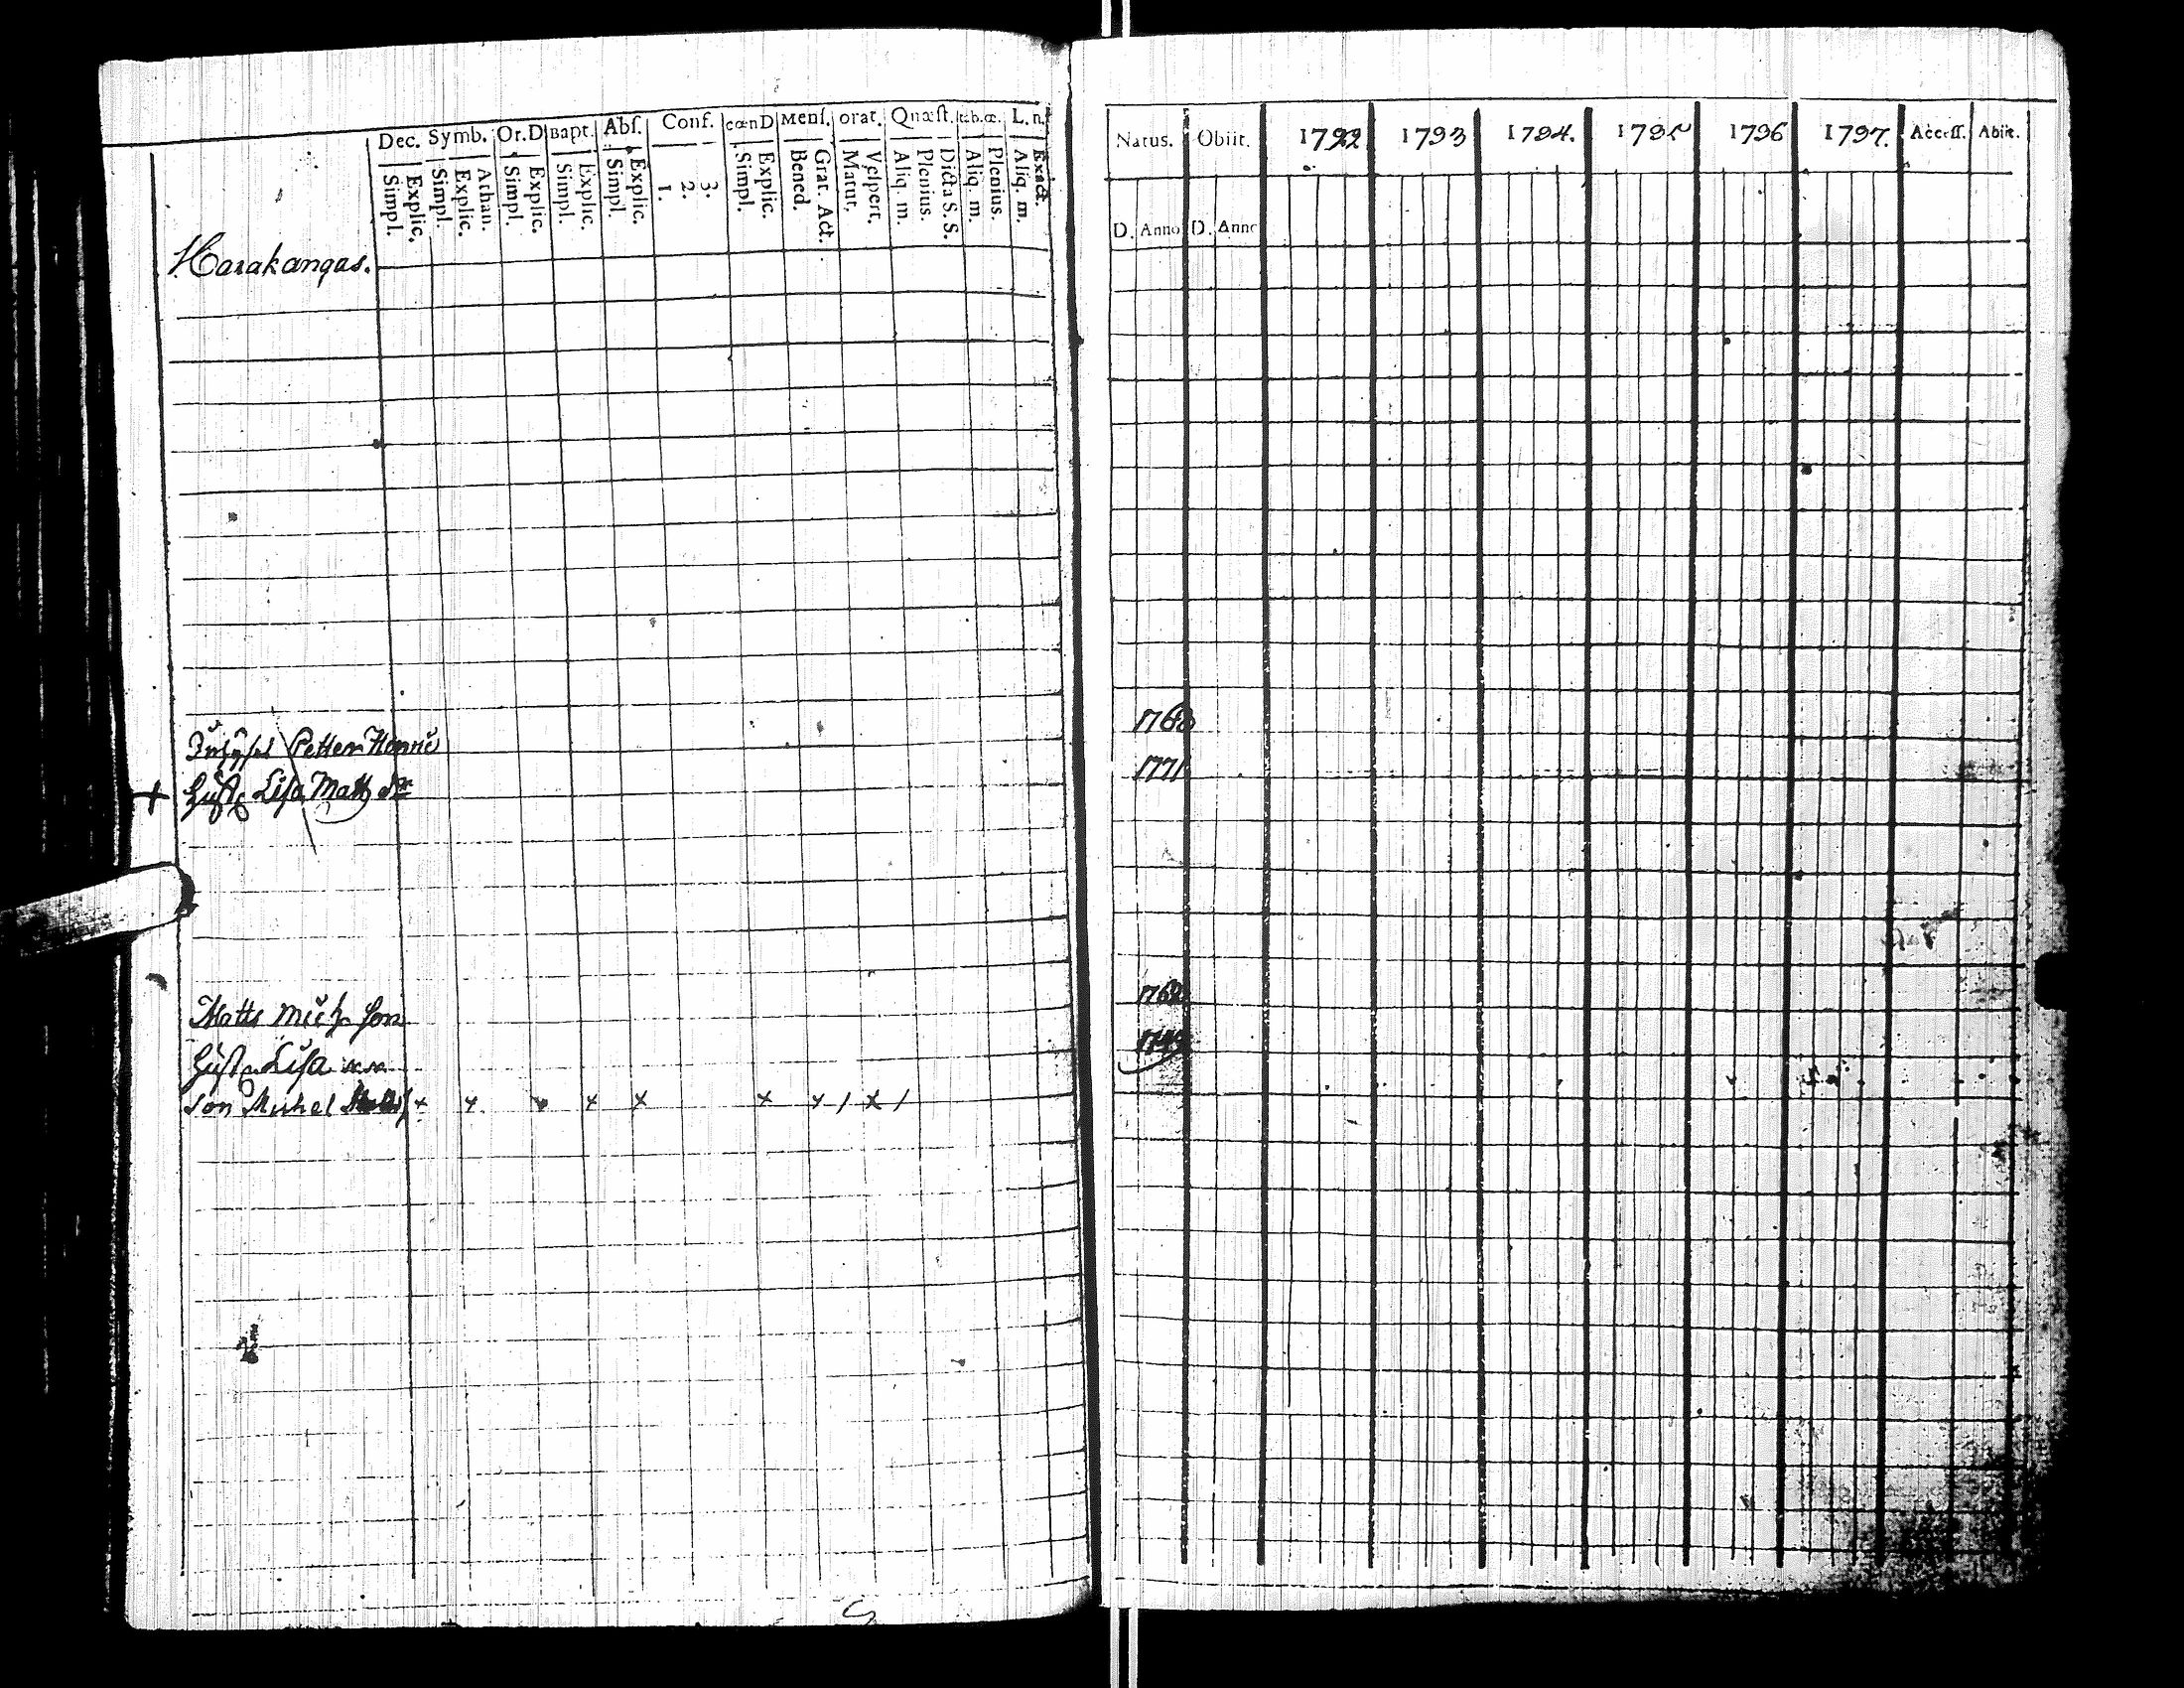 Dec. Symb. Or.D Bapt. Abs. Conf. cœnD Mens. orat. Quæst. tab.œ. L. n.
Simpl. Explic. Simpl. Explic. Athan. Simpl. Explic. Simpl. Explic. Simpl. Explic. 1. 2. 3. Simpl. Explic. Bened. Grat. Act. Matut. Vespert. Aliq. m. Plenius. Dicta S. S. Aliq. m. Plenius. Aliq. m. Exact.
Harakangas.
Petter Hen
+ Hust Lisa Matts dr
Matts Mich son
Hust Lisa
Son Michel + + + + + + + / + /
Natus. Obiit. 1792 1793 1794. 1795 1796 1797. Access. Abiit.
D. Anno D. Anno
1768
1771
1762
1749